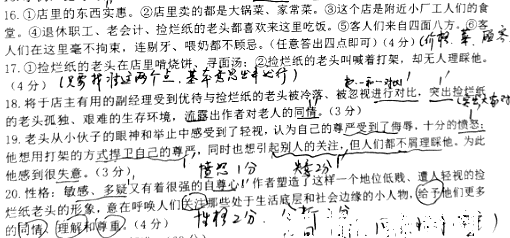 16. ①店里的东西实惠。②店里卖的都是大锅菜、家常菜。③这个店是附近小厂工人们的食
堂。④退休职工、老会计、捡烂纸的老头都喜欢来这里吃饭。⑤客人们来自四面八方。⑥客
人们在这里毫不拘束,连剔牙、喂奶都不顾忌。(任意答出四点即可)(4分)
17. ①捡烂纸的老头在店里啃烧饼、寻面汤;②捡烂纸的老头叫喊着打架,却无人理睬他。
(4分)
18. 将于店主有用的副经理受到优待与捡烂纸的老头被冷落、被忽视进行对比,突出捡烂纸
的老头孤独、艰难的生存环境,流露出作者对老人的同情。(3分)
19. 老头从小伙子的眼神和举止中感受到了轻视,认为自己的尊严受到了侮辱,十分的愤怒;
他想用打架的方式捍卫自己的尊严,同时也想引起别人的关注,但人们都不屑理睬他。为此
他感到很失意。(3分)
愤怒1分 失意2分
20. 性格:敏感、多疑又有着很强的自尊心。作者塑造了这样一个地位低贱、遭人轻视的捡
烂纸老头的形象,意在呼唤人们关注那些处于生活底层和社会边缘的小人物,给予他们更多
的同情、理解和尊重。(4分)
性格2分